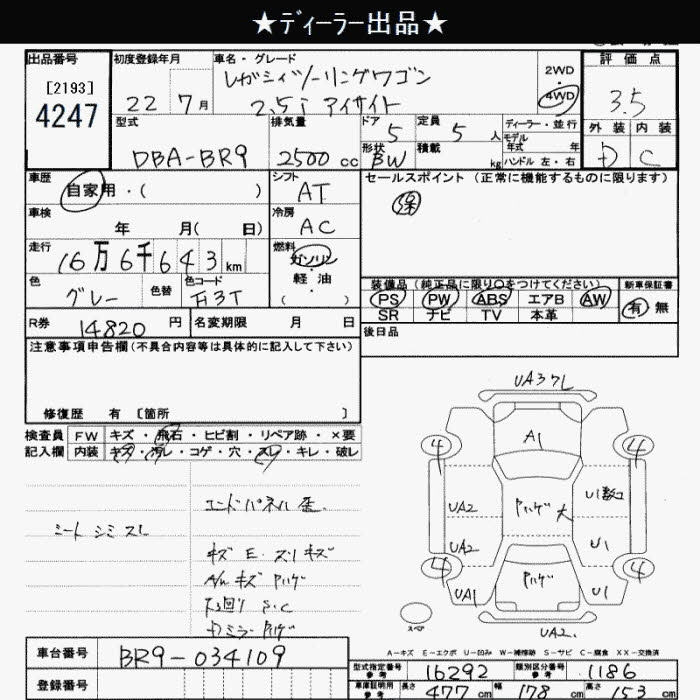 ★ディーラー出品★
出品番号 初度登録年月 車名・グレード 評価点
[2193] レガシィツーリングワゴン 2WD
4247 22年 7月 2.5i アイサイト 4WD 3.5
型式 排気量 ドア 5 定員 5人 ディーラー・並行 外装 内装
DBA-BR9 2500cc 形状 BW 積載 kg モデル年式 年 D C
ハンドル 左・右
車歴 シフト セールスポイント (正常に機能するものに限ります)
自家用・( ) AT 保
車検 冷房
年 月( 日) AC
走行 燃料
16万6千643km ガソリン
軽油
( )
色 色替 色コード 装備品 (純正品に限り〇をつけてください) 新車保証書
グレー PS PW ABS エアB AW 有 無
SR ナビ TV 本革
R券 14820円 名変期限 月 日 後日品
注意事項申告欄(不具合内容等は具体的に記入して下さい)
修復歴 有 [箇所 ]
検査員 FW キズ・飛石・ヒビ割・リペア跡・×要
記入欄 内装 キズ・汚レ・コゲ・穴・スレ・キレ・破レ
エンドパネル歪
シート シミ スレ
キズ E・スリキズ
A/W キズ ハゲ
下回り S・C
Dミラー ハゲ
UA3 ワレ
4 4
A1
UA2 ハゲ 大 U1数コ
UA2 U1
4 4
UA1 ハゲ U1
スペア UA2.
A-キズ E-エクボ U-凹み W-補修跡 S-サビ C-腐食 XX-交換済
車台番号 BR9-034109 型式指定番号 参考 16292 類別区分番号 参考 1186
登録番号 車庫証明用 参考 長さ 477cm 幅 178cm 高さ 153cm